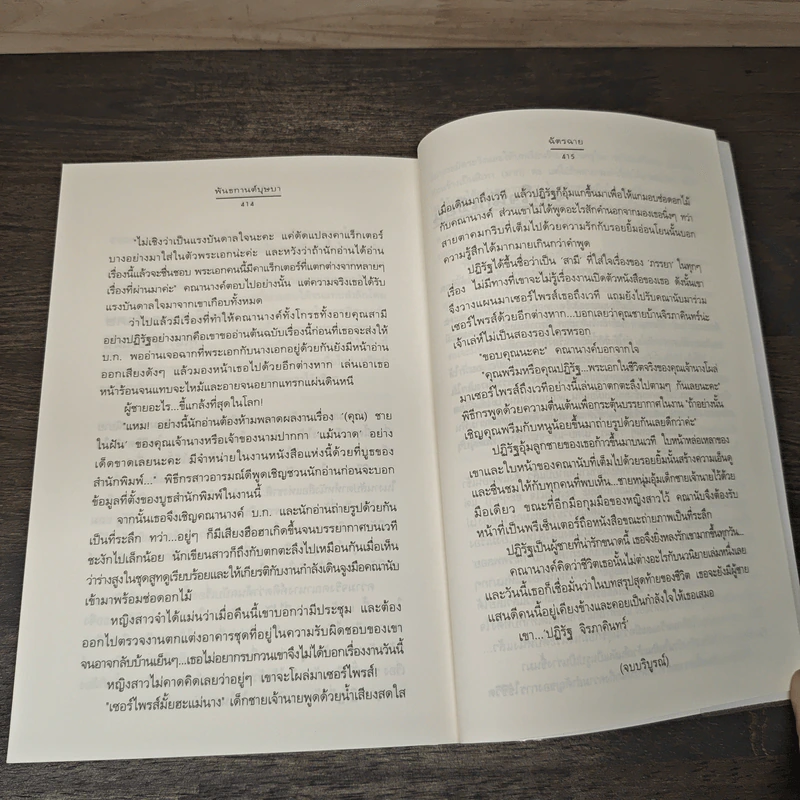 พันธกานต์บุษบา
414
"ไม่เชิงว่าเป็นแรงบันดาลใจนะคะ แค่ดัดแปลงคาแร็กเตอร์
บางอย่างมาใส่ในตัวพระเอกน่ะค่ะ และหวังว่าถ้านักอ่านได้อ่าน
เรื่องนี้แล้วจะชื่นชอบ พระเอกคนนี้มีคาแร็กเตอร์ที่แตกต่างจากหลายๆ
เรื่องที่ผ่านมาค่ะ" คณานางค์ตอบไปอย่างนั้น แต่ความจริงเธอได้รับ
แรงบันดาลใจมาจากเขาเกือบทั้งหมด
ว่าไปแล้วมีเรื่องที่ทำให้คณานางค์ทั้งโกรธทั้งอายคุณสามี
อย่างปฏิรัฐอย่างมากคือเขาขออ่านต้นฉบับเรื่องนี้ก่อนที่เธอจะส่งให้
บ.ก. พออ่านเจอฉากที่พระเอกกับนางเอกอยู่ด้วยกันยังมีหน้าอ่าน
ออกเสียงดังๆ แล้วมองหน้าเธอไปด้วยอีกต่างหาก เล่นเอาเธอ
หน้าร้อนจนแทบจะไหม้และอายจนอยากแทรกแผ่นดินหนี
ผู้ชายอะไร...ขี้แกล้งที่สุดในโลก!
"แหม! อย่างนี้นักอ่านต้องห้ามพลาดผลงานเรื่อง '(คุณ) ชาย
ในฝัน' ของคุณเจ้านางหรือเจ้าของนามปากกา 'แม้นวาด' อย่าง
เด็ดขาดเลยนะคะ มีจำหน่ายในงานหนังสือแห่งนี้ด้วยที่บูธของ
สำนักพิมพ์..." พิธีกรสาวอารมณ์ดีพูดเชิญชวนนักอ่านก่อนจะบอก
ข้อมูลที่ตั้งของบูธสำนักพิมพ์ในงานนี้
จากนั้นเธอจึงเชิญคณานางค์ บ.ก. และนักอ่านถ่ายรูปด้วยกัน
เป็นที่ระลึก ทว่า...อยู่ๆ ก็มีเสียงฮือฮาเกิดขึ้นจนบรรยากาศบนเวที
ชะงักไปเล็กน้อย นักเขียนสาวก็ถึงกับตกตะลึงไปเหมือนกันเมื่อเห็น
ว่าร่างสูงในชุดสูทดูเรียบร้อยและให้เกียรติกับงานกำลังเดินจูงมือคณานับ
เข้ามาพร้อมช่อดอกไม้
หญิงสาวจำได้แม่นว่าเมื่อคืนนี้เขาบอกว่ามีประชุม และต้อง
ออกไปตรวจงานตกแต่งอาคารชุดที่อยู่ในความรับผิดชอบของเขา
จนอาจกลับบ้านเย็นๆ...เธอไม่อยากรบกวนเขาจึงไม่ได้บอกเรื่องงานวันนี้
หญิงสาวไม่คาดคิดเลยว่าอยู่ๆ เขาจะโผล่มาเซอร์ไพรส์!
"เซอร์ไพรส์มั้ยฮะแม่นาง" เด็กชายเจ้านายพูดด้วยน้ำเสียงสดใส
ฉัตรฉาย
415
เมื่อเดินมาถึงเวที แล้วปฏิรัฐก็อุ้มแกขึ้นมาเพื่อให้แกมอบช่อดอกไม้
กับคณานางค์ ส่วนเขาไม่ได้พูดอะไรสักคำนอกจากมองเธอนิ่งๆ ทว่า
สายตาคมกริบที่เต็มไปด้วยความรักกับรอยยิ้มอ่อนโยนนั้นบอก
ความรู้สึกได้มากมายเกินกว่าคำพูด
ปฏิรัฐได้ขึ้นชื่อว่าเป็น 'สามี' ที่ใส่ใจเรื่องของ 'ภรรยา' ในทุกๆ
เรื่อง ไม่มีทางที่เขาจะไม่รู้เรื่องงานเปิดตัวหนังสือของเธอ ดังนั้นเขา
จึงวางแผนมาเซอร์ไพรส์เธอถึงเวที แถมยังไปรับคณานับมาร่วม
เซอร์ไพรส์ด้วยอีกต่างหาก...บอกเลยว่าคุณชายบ้านจิรภาคินทร์น่ะ
เจ้าเล่ห์ไม่เป็นสองรองใครหรอก
"ขอบคุณนะคะ" คณานางค์บอกจากใจ
"คุณพรีมหรือคุณปฏิรัฐ...พระเอกในชีวิตจริงของคุณเจ้านางโผล่
มาเซอร์ไพรส์ถึงเวทีอย่างนี้เล่นเอาตกตะลึงไปตามๆ กันเลยนะคะ"
พิธีกรพูดด้วยความตื่นเต้นเพื่อกระตุ้นบรรยากาศในงาน "ถ้าอย่างนั้น
เชิญคุณพรีมกับหนูน้อยขึ้นมาถ่ายรูปด้วยกันเลยดีกว่าค่ะ"
ปฏิรัฐอุ้มลูกชายของเธอก้าวขึ้นมาบนเวที ใบหน้าหล่อเหลาของ
เขาและใบหน้าของคณานับที่เต็มไปด้วยรอยยิ้มนั้นสร้างความเอ็นดู
และชื่นชมให้กับทุกคนที่พบเห็น...ชายหนุ่มอุ้มเด็กชายเจ้านายไว้ด้วย
มือเดียว ขณะที่อีกมือกุมมือของหญิงสาวไว้ คณานับจึงต้องรับ
หน้าที่เป็นพรีเซ็นเตอร์ถือหนังสือขณะถ่ายภาพเป็นที่ระลึก
ปฏิรัฐเป็นผู้ชายที่น่ารักขนาดนี้ เธอจึงยิ่งหลงรักเขามากขึ้นทุกวัน...
คณานางค์คิดว่าชีวิตเธอนั้นไม่ต่างอะไรกับนวนิยายเล่มหนึ่งเลย
และวันนี้เธอก็เชื่อมั่นว่าในบทสรุปสุดท้ายของชีวิต เธอจะยังมีผู้ชาย
แสนดีคนนี้อยู่เคียงข้างและคอยเป็นกำลังใจให้เธอเสมอ
เขา...'ปฏิรัฐ จิรภาคินทร์'
(จบบริบูรณ์)